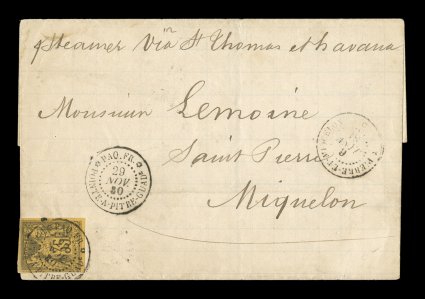 p Steamer Via St Thomas et havana
Monsieur Lemoine
Saint Pierre
Miquelon
PAQ. FR.
29
NOV
80
POINTE-A-PITRE-GUADP